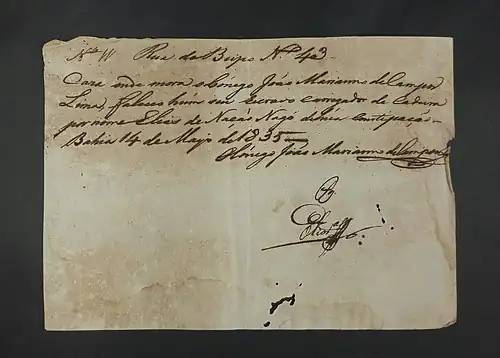 Rua do Bispo Nº 43
Caza onde mora o Cónego João Marianno de Campos
Lima, faleceo hum seu escravo carregador de Cadeira
por nome Elias de Nação Nagô
Bahia 14 de Majo de 1835
O Cónego João Marianno de Campos